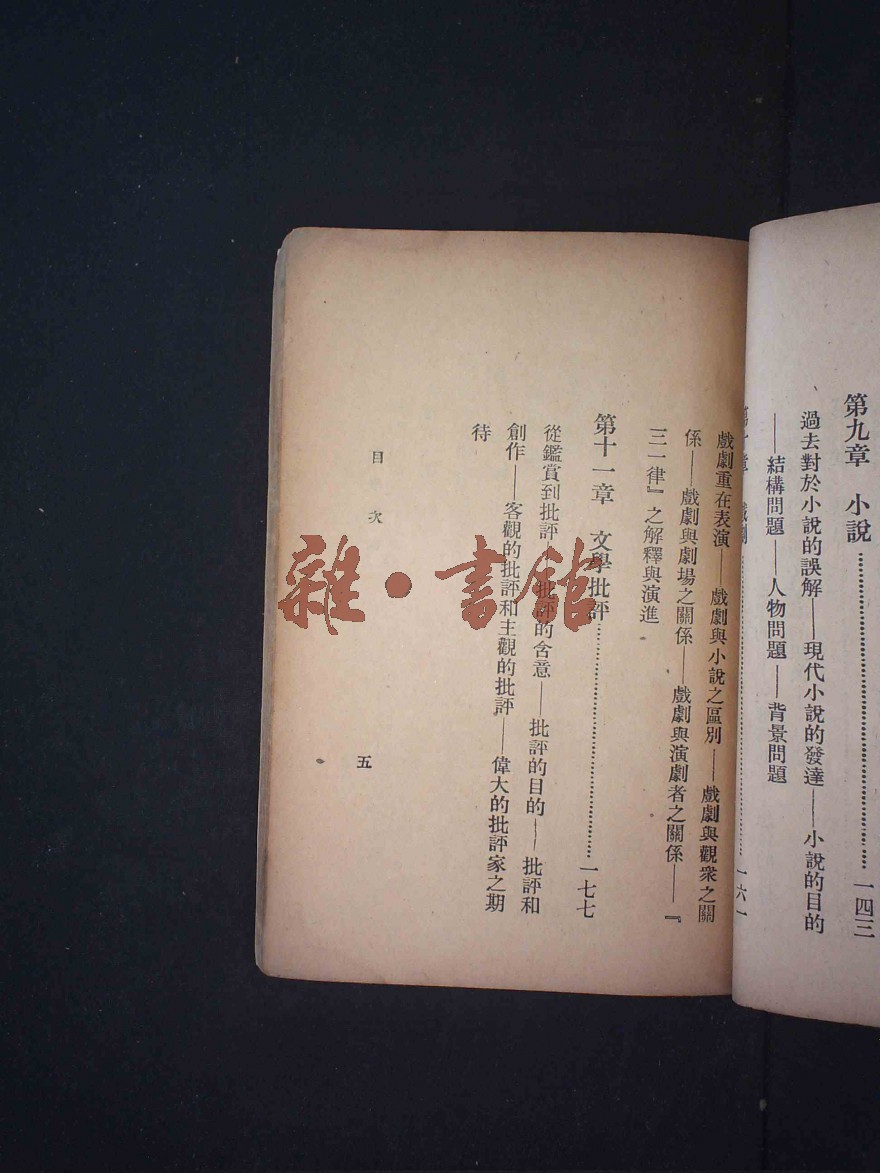 第九章　小說……………………一四三
過去對於小說的誤解——現代小說的發達——小說的目的
——結構問題——人物問題——背景問題
第十章　戲劇……………………一六一
戲劇重在表演——戲劇與小說之區別——戲劇與觀衆之關
係——戲劇與劇場之關係——戲劇與演劇者之關係——『
三一律』之解釋與演進
第十一章　文學批評……………………一七七
從鑑賞到批評——批評的含意——批評的目的——批評和
創作——客觀的批評和主觀的批評——偉大的批評家之期
待
目次
五
雜·書館